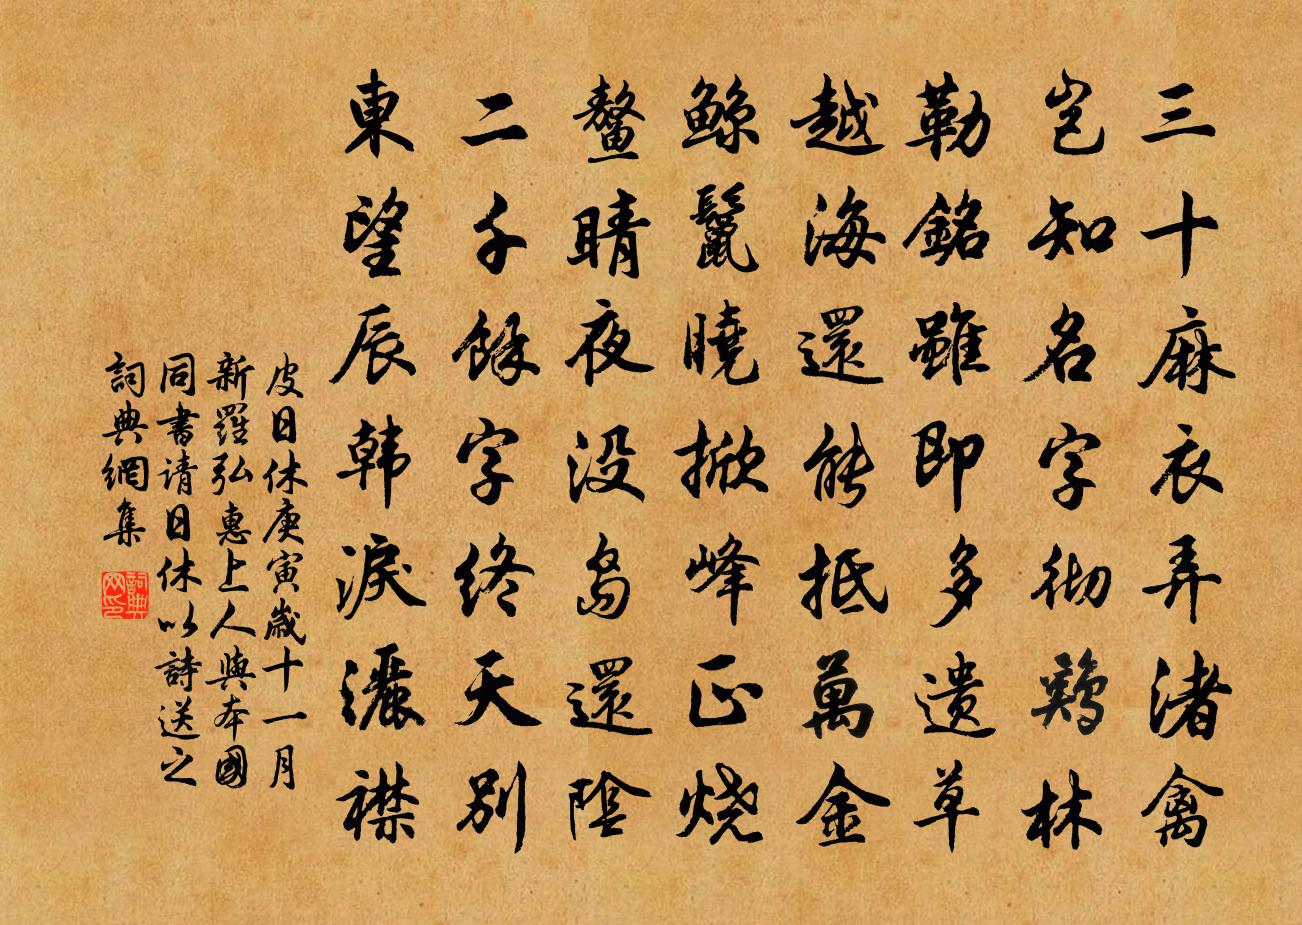 三十麻衣弄渚禽
岂知名字彻鷄林
勒銘雖即多遗草
越海還能抵萬金
鯨鬣曉掀峰正烧
鰲睛夜没岛還陰
二千餘字终天别
東望辰韩淚灑襟
皮日休庚寅歲十一月
新羅弘惠上人與本國
同書请日休以詩送之
詞典網集
詞典网印